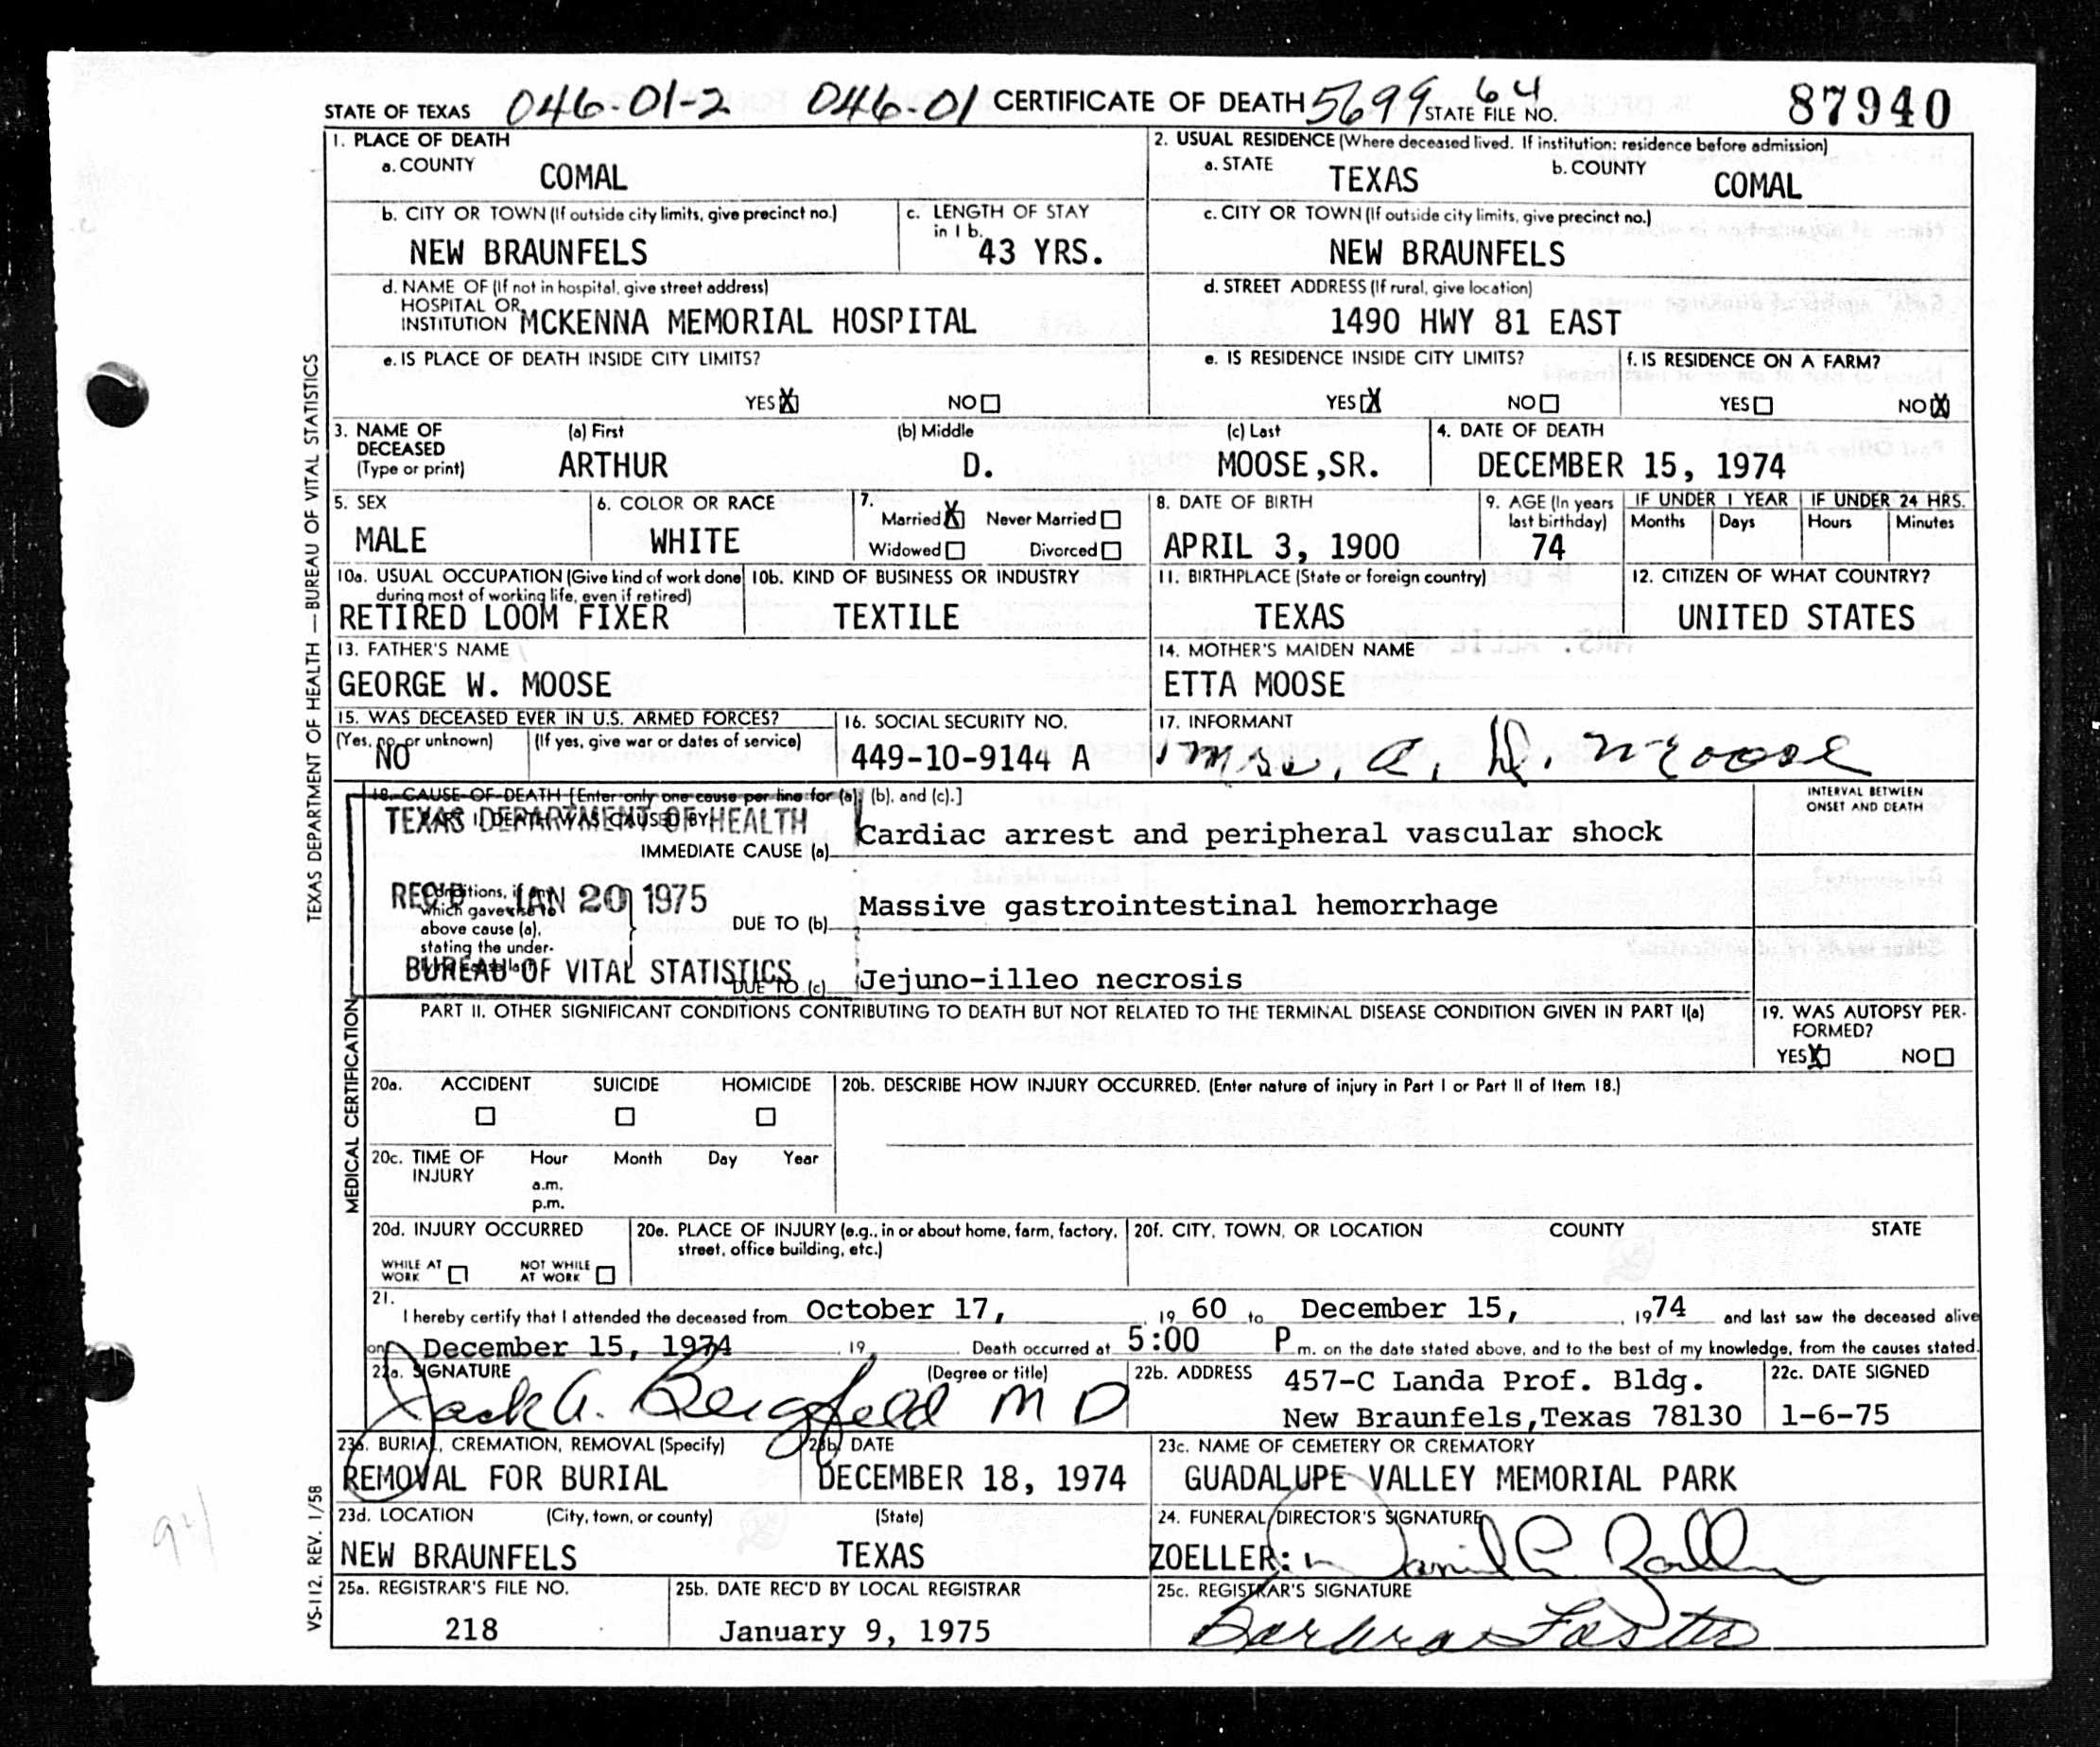 STATE OF TEXAS 046-01-2 046-01 CERTIFICATE OF DEATH 5699 64 STATE FILE NO. 87940
1. PLACE OF DEATH
a. COUNTY COMAL
2. USUAL RESIDENCE (Where deceased lived. If institution: residence before admission)
a. STATE TEXAS b. COUNTY COMAL
b. CITY OR TOWN (If outside city limits, give precinct no.)
NEW BRAUNFELS
c. LENGTH OF STAY
in 1 b. 43 YRS.
c. CITY OR TOWN (If outside city limits, give precinct no.)
NEW BRAUNFELS
d. NAME OF (If not in hospital, give street address)
HOSPITAL OR
INSTITUTION MCKENNA MEMORIAL HOSPITAL
d. STREET ADDRESS (If rural, give location)
1490 HWY 81 EAST
e. IS PLACE OF DEATH INSIDE CITY LIMITS?
YES X NO
e. IS RESIDENCE INSIDE CITY LIMITS?
YES X NO
f. IS RESIDENCE ON A FARM?
YES NO X
3. NAME OF
DECEASED
(Type or print)
(a) First (b) Middle (c) Last
ARTHUR D. MOOSE,SR.
4. DATE OF DEATH
DECEMBER 15, 1974
5. SEX
MALE
6. COLOR OR RACE
WHITE
7.
Married X Never Married
Widowed Divorced
8. DATE OF BIRTH
APRIL 3, 1900
9. AGE (In years
last birthday)
74
IF UNDER 1 YEAR IF UNDER 24 HRS.
Months Days Hours Minutes
10a. USUAL OCCUPATION (Give kind of work done
during most of working life, even if retired)
RETIRED LOOM FIXER
10b. KIND OF BUSINESS OR INDUSTRY
TEXTILE
11. BIRTHPLACE (State or foreign country)
TEXAS
12. CITIZEN OF WHAT COUNTRY?
UNITED STATES
13. FATHER'S NAME
GEORGE W. MOOSE
14. MOTHER'S MAIDEN NAME
ETTA MOOSE
15. WAS DECEASED EVER IN U.S. ARMED FORCES?
(Yes, no, or unknown) (If yes, give war or dates of service)
NO
16. SOCIAL SECURITY NO.
449-10-9144 A
17. INFORMANT
Mrs. A. D. Moose
18. CAUSE OF DEATH [Enter only one cause per line for (a), (b), and (c).]
PART I. DEATH WAS CAUSED BY:
TEXAS DEPARTMENT OF HEALTH
INTERVAL BETWEEN
ONSET AND DEATH
IMMEDIATE CAUSE (a) Cardiac arrest and peripheral vascular shock
REC'D JAN 20 1975
Conditions, if any,
which gave rise to
above cause (a),
stating the under-
DUE TO (b) Massive gastrointestinal hemorrhage
BUREAU OF VITAL STATISTICS
DUE TO (c) Jejuno-illeo necrosis
PART II. OTHER SIGNIFICANT CONDITIONS CONTRIBUTING TO DEATH BUT NOT RELATED TO THE TERMINAL DISEASE CONDITION GIVEN IN PART I(a)
19. WAS AUTOPSY PER-
FORMED?
YES X NO
20a. ACCIDENT SUICIDE HOMICIDE
20b. DESCRIBE HOW INJURY OCCURRED. (Enter nature of injury in Part I or Part II of Item 18.)
20c. TIME OF
INJURY
Hour Month Day Year
a.m.
p.m.
20d. INJURY OCCURRED
WHILE AT
WORK
NOT WHILE
AT WORK
20e. PLACE OF INJURY (e.g., in or about home, farm, factory,
street, office building, etc.)
20f. CITY, TOWN, OR LOCATION COUNTY STATE
21.
I hereby certify that I attended the deceased from October 17, 19 60 to December 15, 1974 and last saw the deceased alive
on December 15, 1974 19 . Death occurred at 5:00 P m. on the date stated above, and to the best of my knowledge, from the causes stated.
22a. SIGNATURE (Degree or title)
Jack A. Bergfeld M D
22b. ADDRESS 457-C Landa Prof. Bldg.
New Braunfels,Texas 78130
22c. DATE SIGNED
1-6-75
23a. BURIAL, CREMATION, REMOVAL (Specify)
REMOVAL FOR BURIAL
23b. DATE
DECEMBER 18, 1974
23c. NAME OF CEMETERY OR CREMATORY
GUADALUPE VALLEY MEMORIAL PARK
23d. LOCATION (City, town, or county) (State)
NEW BRAUNFELS TEXAS
24. FUNERAL DIRECTOR'S SIGNATURE
ZOELLER:
25a. REGISTRAR'S FILE NO.
218
25b. DATE REC'D BY LOCAL REGISTRAR
January 9, 1975
25c. REGISTRAR'S SIGNATURE
Barbara
TEXAS DEPARTMENT OF HEALTH — BUREAU OF VITAL STATISTICS
MEDICAL CERTIFICATION
VS-112, REV. 1/58